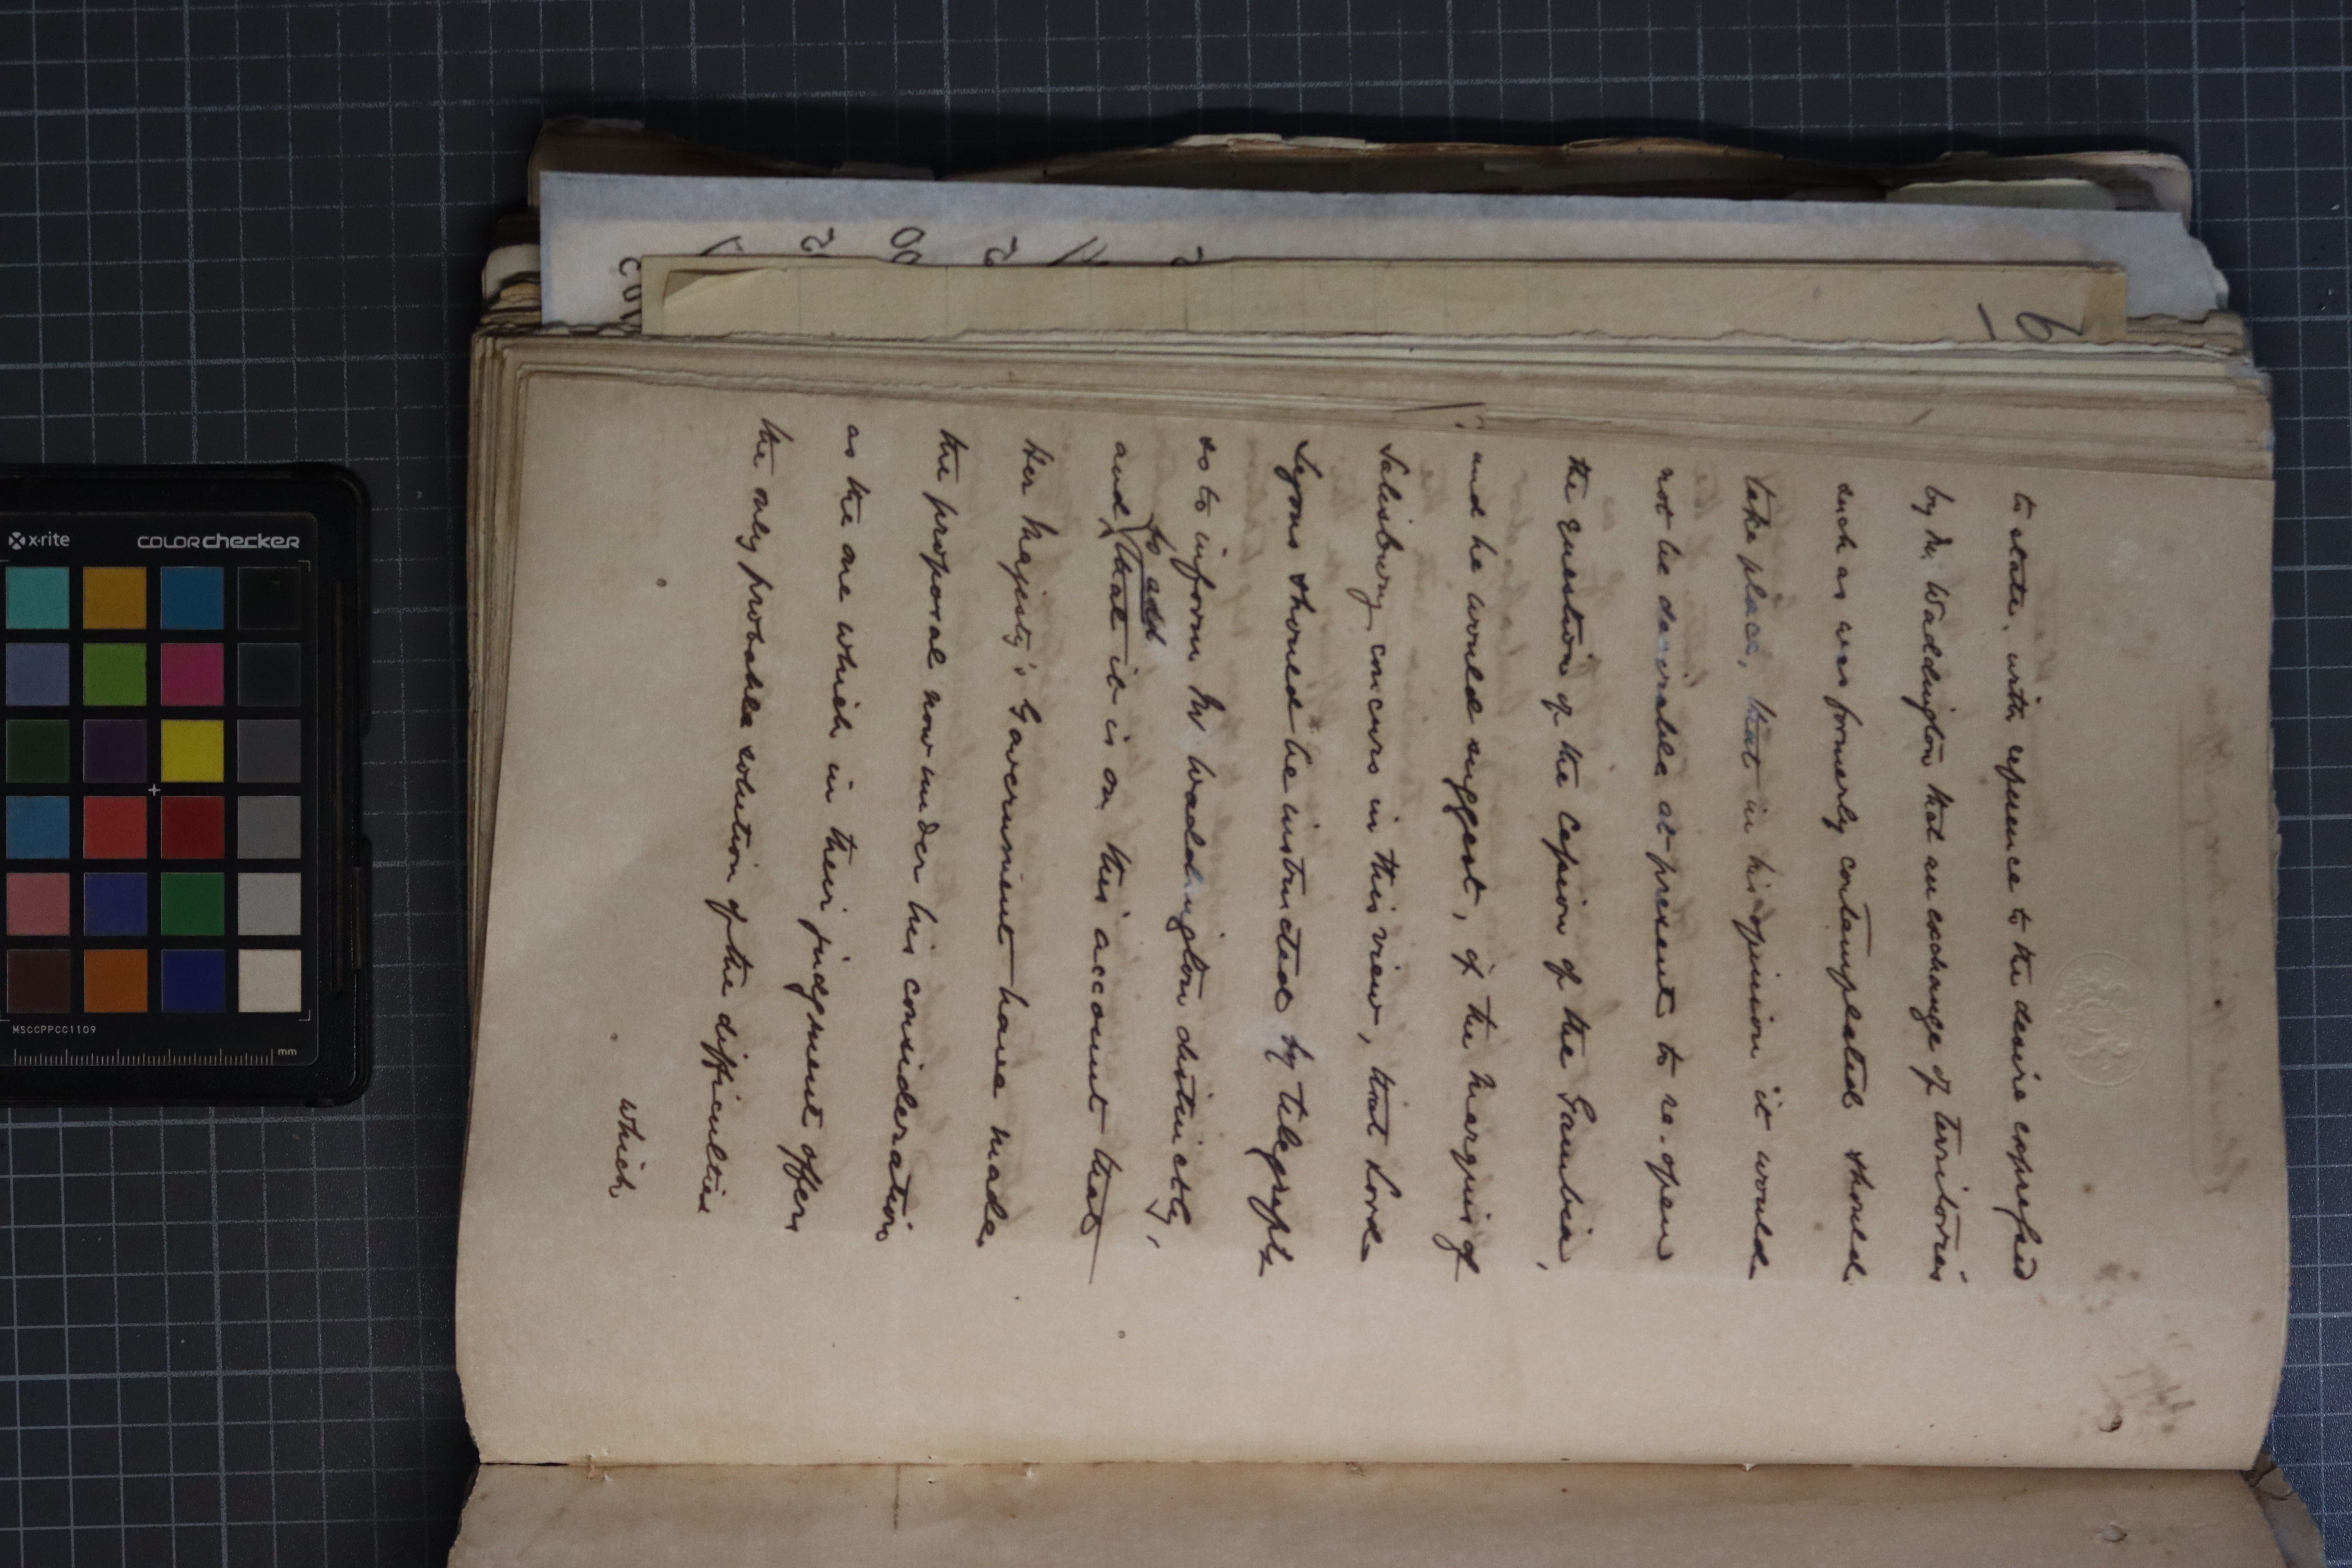 to state, with reference to the desire expressed
by M. Waddington that an exchange of territories
such as was formerly contemplated should
take place, that in his opinion it would
not be desirable at present to re-open
the question of the cession of the Gambia,
and he would suggest, if the Marquis of
Salisbury concurs in this view, that Lord
Lyons should be instructed by telegraph
so to inform M. Waddington distinctly,
to add
and that it is on this account that
Her Majesty's Government have made
the proposal now under his consideration
as the one which in their judgment offers
the only probable solution of the difficulties
which
x-rite
COLORchecker
MSCCPPCC1109
mm